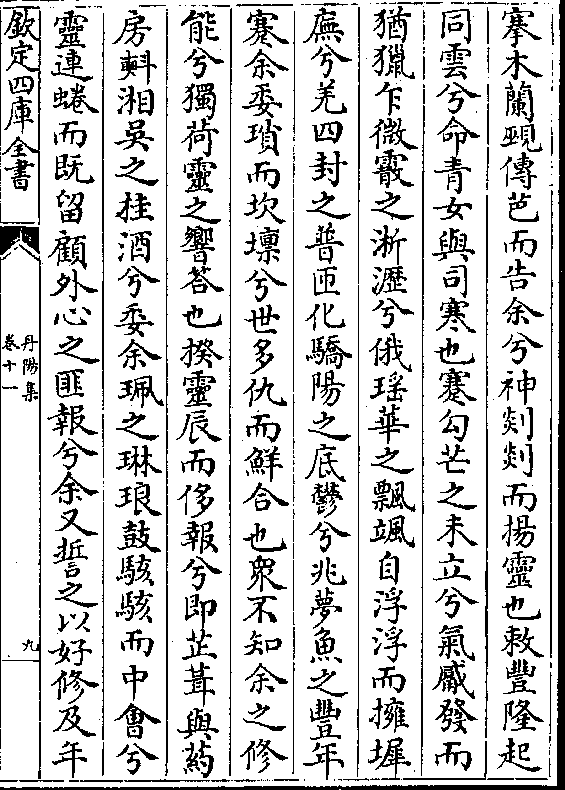 搴木蘭覡傳芭而告余兮神剡剡而揚靈也敕豐隆起
同雲兮命青女與司寒也蹇勾芒之未立兮氣觱發而
猶獵乍微霰之淅瀝兮俄瑶華之飄颯自浮浮而擁墀
廡兮羌四封之普匝化驕陽之底鬱兮兆夢魚之豐年
蹇余委瑣而坎壈兮世多仇而鮮合也衆不知余之修
能兮獨荷靈之響答也揆靈辰而侈報兮即芷葺與葯
房㪺湘吳之挂酒兮委余珮之琳琅鼓駭駭而中會兮
靈連蜷而既留顧外心之匪報兮余又誓之以好修及年
欽定四庫全書
丹陽集
卷十一
九